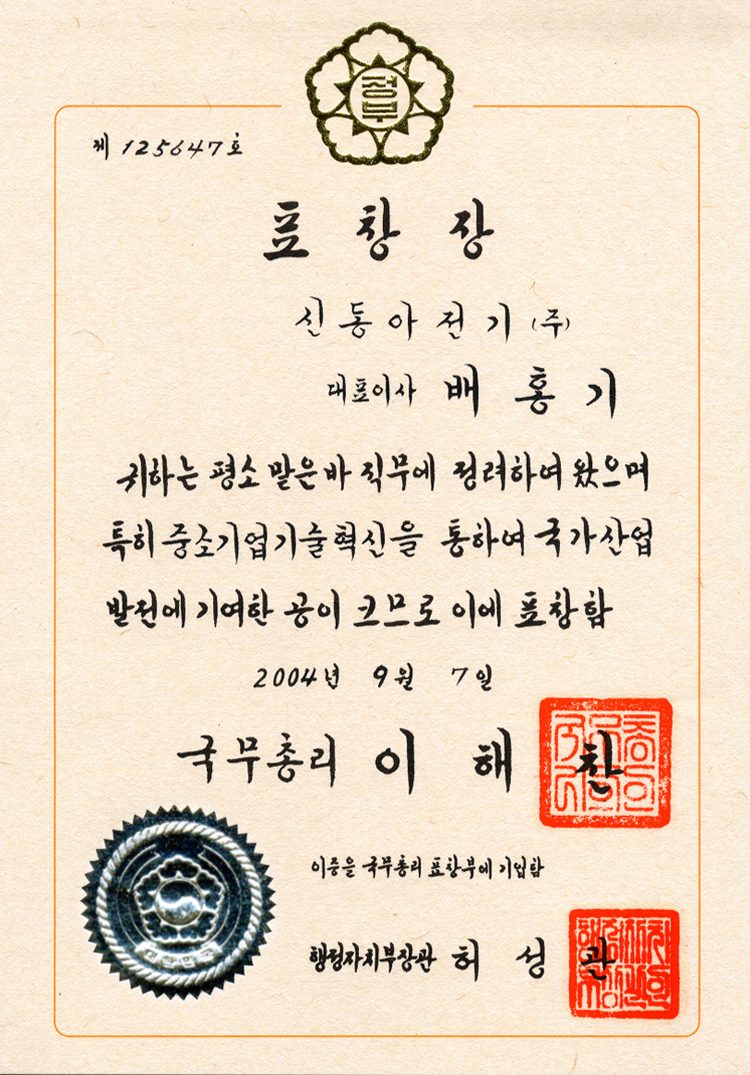 정부
제 125647호
표 창 장
신 동 아 전 기 (주)
대표이사 배 홍 기
귀하는 평소 맡은바 직무에 정려하여 왔으며
특히 중소기업기술혁신을 통하여 국가산업
발전에 기여한 공이 크므로 이에 표창함
2004년 9월 7일
국무총리 이 해 찬
이증을 국무총리 표창부에 기입함
행정자치부장관 허 성 관
대한민국